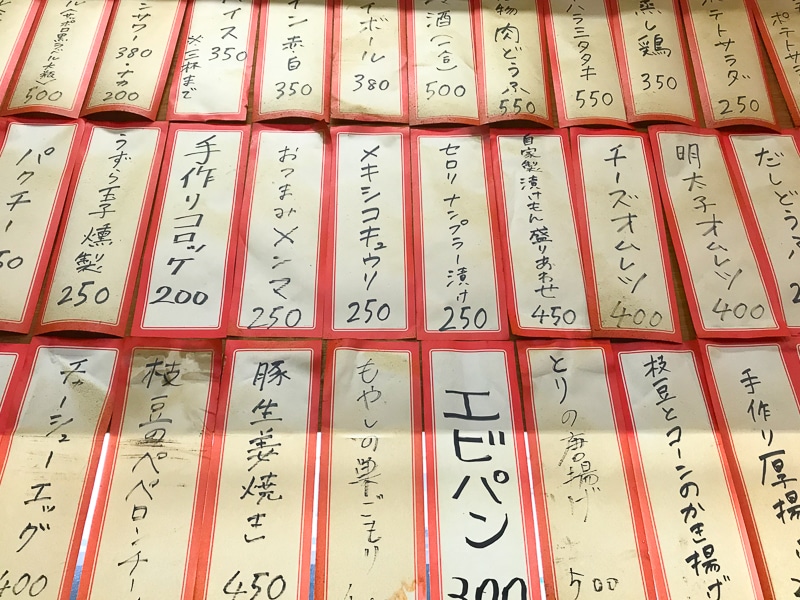 500
サワー 380 ナカ 200
イス 350
※三杯まで
イン赤白 350
イボール 380
酒(一合) 500
肉どうふ 550
ハラミタタキ 550
蒸し鶏 350
ポテトサラダ 250
ポテトサ
パクチー 50
うずら玉子燻製 250
手作りコロッケ 200
おつまみメンマ 250
メキシコキュウリ 250
セロリナンプラー漬け 250
自家製漬けもん盛りあわせ 450
チーズオムレツ 400
明太子オムレツ 400
だしどうふ
チャーシューエッグ 400
枝豆のペペロンチー
豚生姜焼き 450
もやしの巣ごもり
エビパン 300
とりの唐揚げ 500
枝豆とコーンのかき揚げ
手作り厚揚